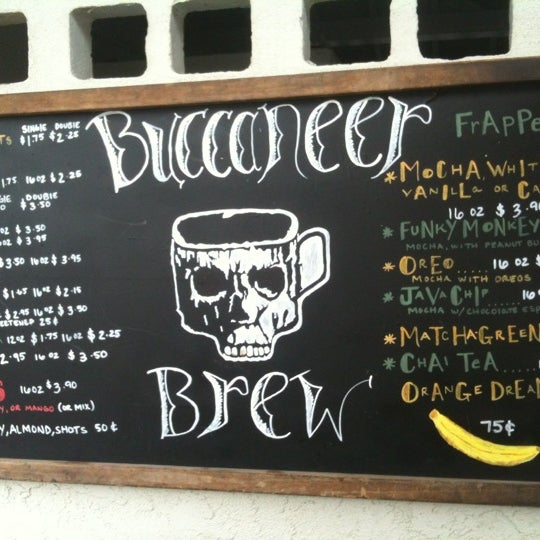 Buccaneer
Brew
SINGLE DOUBLE
$1.75 $2.25
1.75 16oz $2.25
DOUBLE
$3.50
16oz $3.50
$3.95
$3.50 16oz $3.95
$1.65 16oz $2.15
$2.95 16oz $3.50
25¢
12oz $1.75 16oz $2.25
2.95 16oz $3.50
16oz $3.90
OR MANGO (OR MIX)
ALMOND, SHOTS 50¢
FRAPPE
*MOCHA, WHIT
VANILLA OR CA
16oz $3.90
*FUNKY MONKEY
MOCHA, WITH PEANUT BU
*OREO..... 16oz $
MOCHA WITH OREOS
*JAVA CHIP..... 16
MOCHA W/CHOCOLATE ESP
*MATCHAGREEN
*CHAI TEA....
ORANGE DREAM
75¢